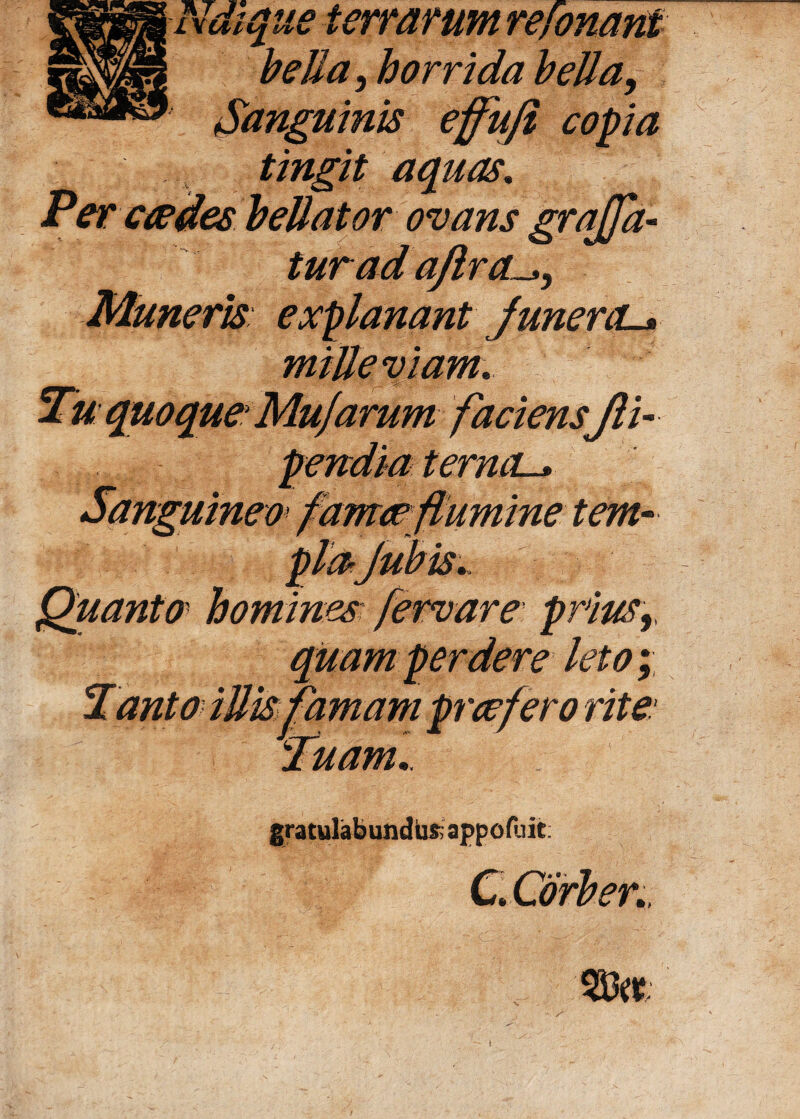 VNdique terrarum reſonant
bella, horrida bella,
Sanguinis effuſi copia
tingit aquas.
Per cædes bellator ovans graſſa-
tur ad aſtra,
Muneris explanant funera
mille viam.
Tu quoque Muſarum faciens ſti-
pendia terna
Sanguineo famæ flumine tem-
pla ſubis.
Quanto homines ſervare prius,
quam perdere leto;
Tanto illis famam præfero rite
Tuam.
gratulabundus appoſuit
C. Cörber.
Wer